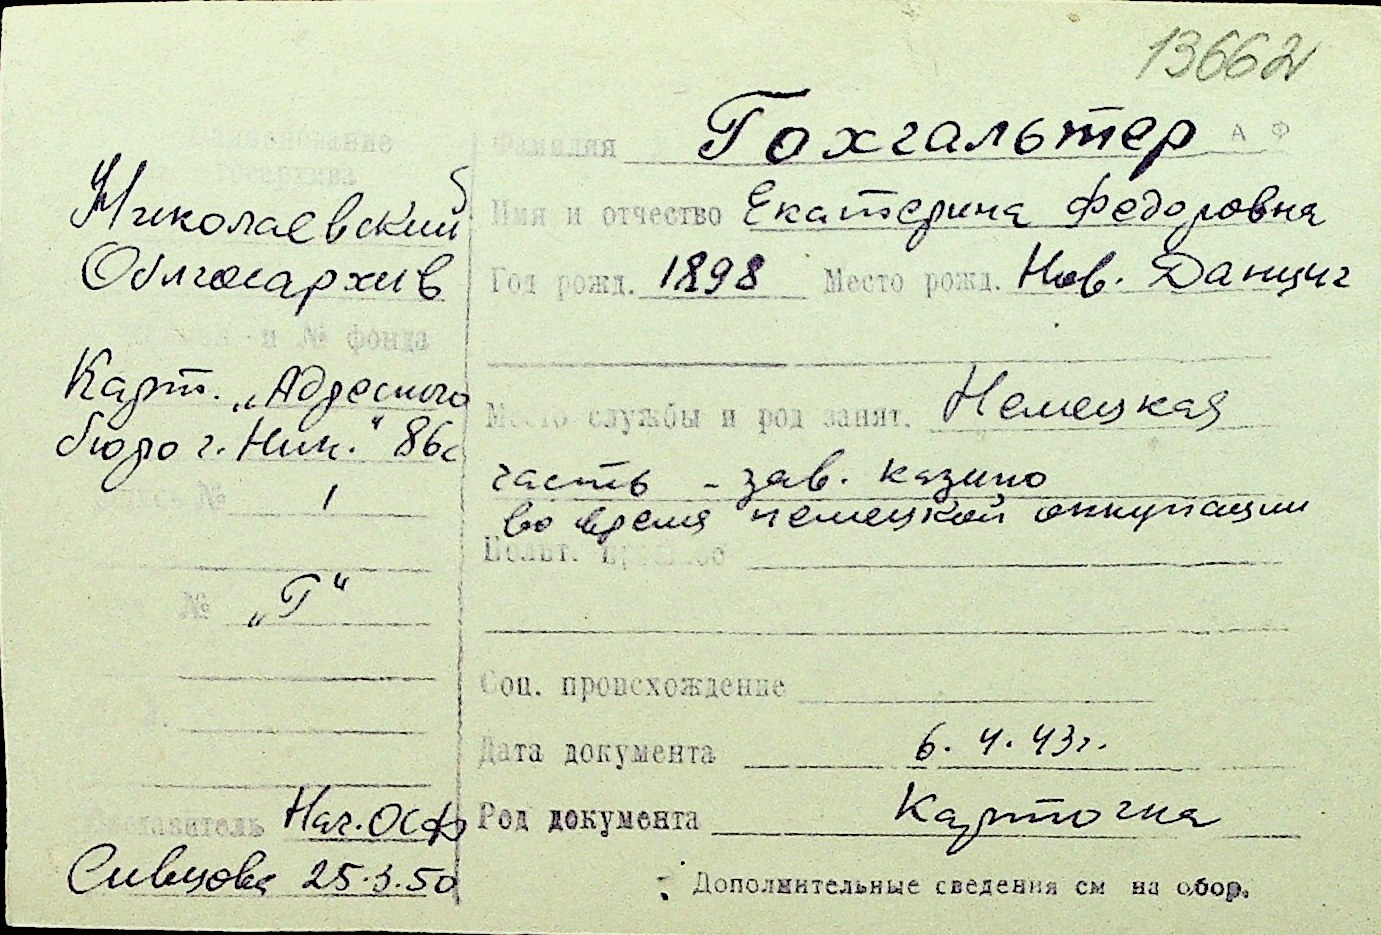 13662
Наименование
госархива
Николаевский
Облгосархив
и № фонда
Карт. „Адресного
бюро г. Ник." 86с
Опись № 1
№ „Г"
Составитель Нач. ОСФ
Сивцова 25.3.50
Фамилия Гохгальтер А Ф
Имя и отчество Екатерина Федоровна
Год рожд. 1898 Место рожд. Нов. Данциг
Место службы и род занят. Немецкая
часть - зав. казино
во время немецкой оккупации
Соц. происхождение
Дата документа 6.4.43г.
Род документа Карточка
Дополнительные сведения см на обор.